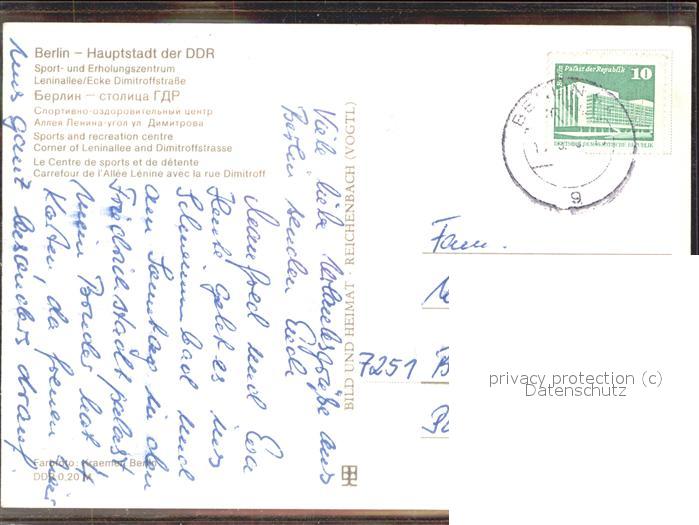 Berlin – Hauptstadt der DDR
Sport- und Erholungszentrum
Leninallee/Ecke Dimitroffstraße
Берлин – столица ГДР
Спортивно-оздоровительный центр
Аллея Ленина-угол ул Димитрова
Sports and recreation centre
Corner of Leninallee and Dimitroffstrasse
Le Centre de sports et de détente
Carrefour de l'Allée Lénine avec la rue Dimitroff
Viele liebe Urlaubsgrüße aus
Berlin senden Euch
Manfred und Eva
Heute geht es ins
Schwimmbad und
am Samstag in den
Friedrichstadtpalast
Mein Bruder hat
Karten, da freuen wir
uns ganz besonders drauf.
Farbfoto: Kraemer, Berlin
DDR 0,20 M
BILD UND HEIMAT · REICHENBACH (VOGTL)
Palast der Republik
10
DEUTSCHE DEMOKRATISCHE REPUBLIK
BERLIN
9
Fam.
7251
privacy protection (c)
Datenschutz